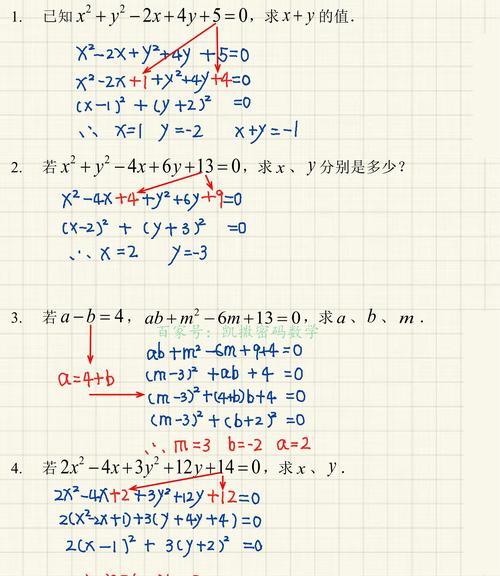 1. 已知 x²+y²-2x+4y+5=0，求x+y的值．
x²-2x+y²+4y+5=0
x²-2x+1+y²+4y+4=0
(x-1)²+(y+2)² =0
∴ x=1 y=-2 x+y=-1
2. 若x²+y²-4x+6y+13=0，求x、y分别是多少？
x²-4x+4+y²+6y+9=0
(x-2)² + (y+3)² =0
∴ x=2 y=-3
3. 若a-b=4，ab+m²-6m+13=0，求a、b、m．
百家号：凯撒密码数学
ab+m²-6m+9+4=0
a=4+b
(m-3)²+ab+4=0
(m-3)²+(4+b)b+4=0
(m-3)²+(b+2)²=0
∴ m=3 b=-2 a=2
4. 若2x²-4x+3y²+12y+14=0，求x、y．
2x²-4x+2+3y²+12y+12=0
2(x²-2x+1)+3(y+4y+4)=0
2(x-1)²+3(y+2)²=0